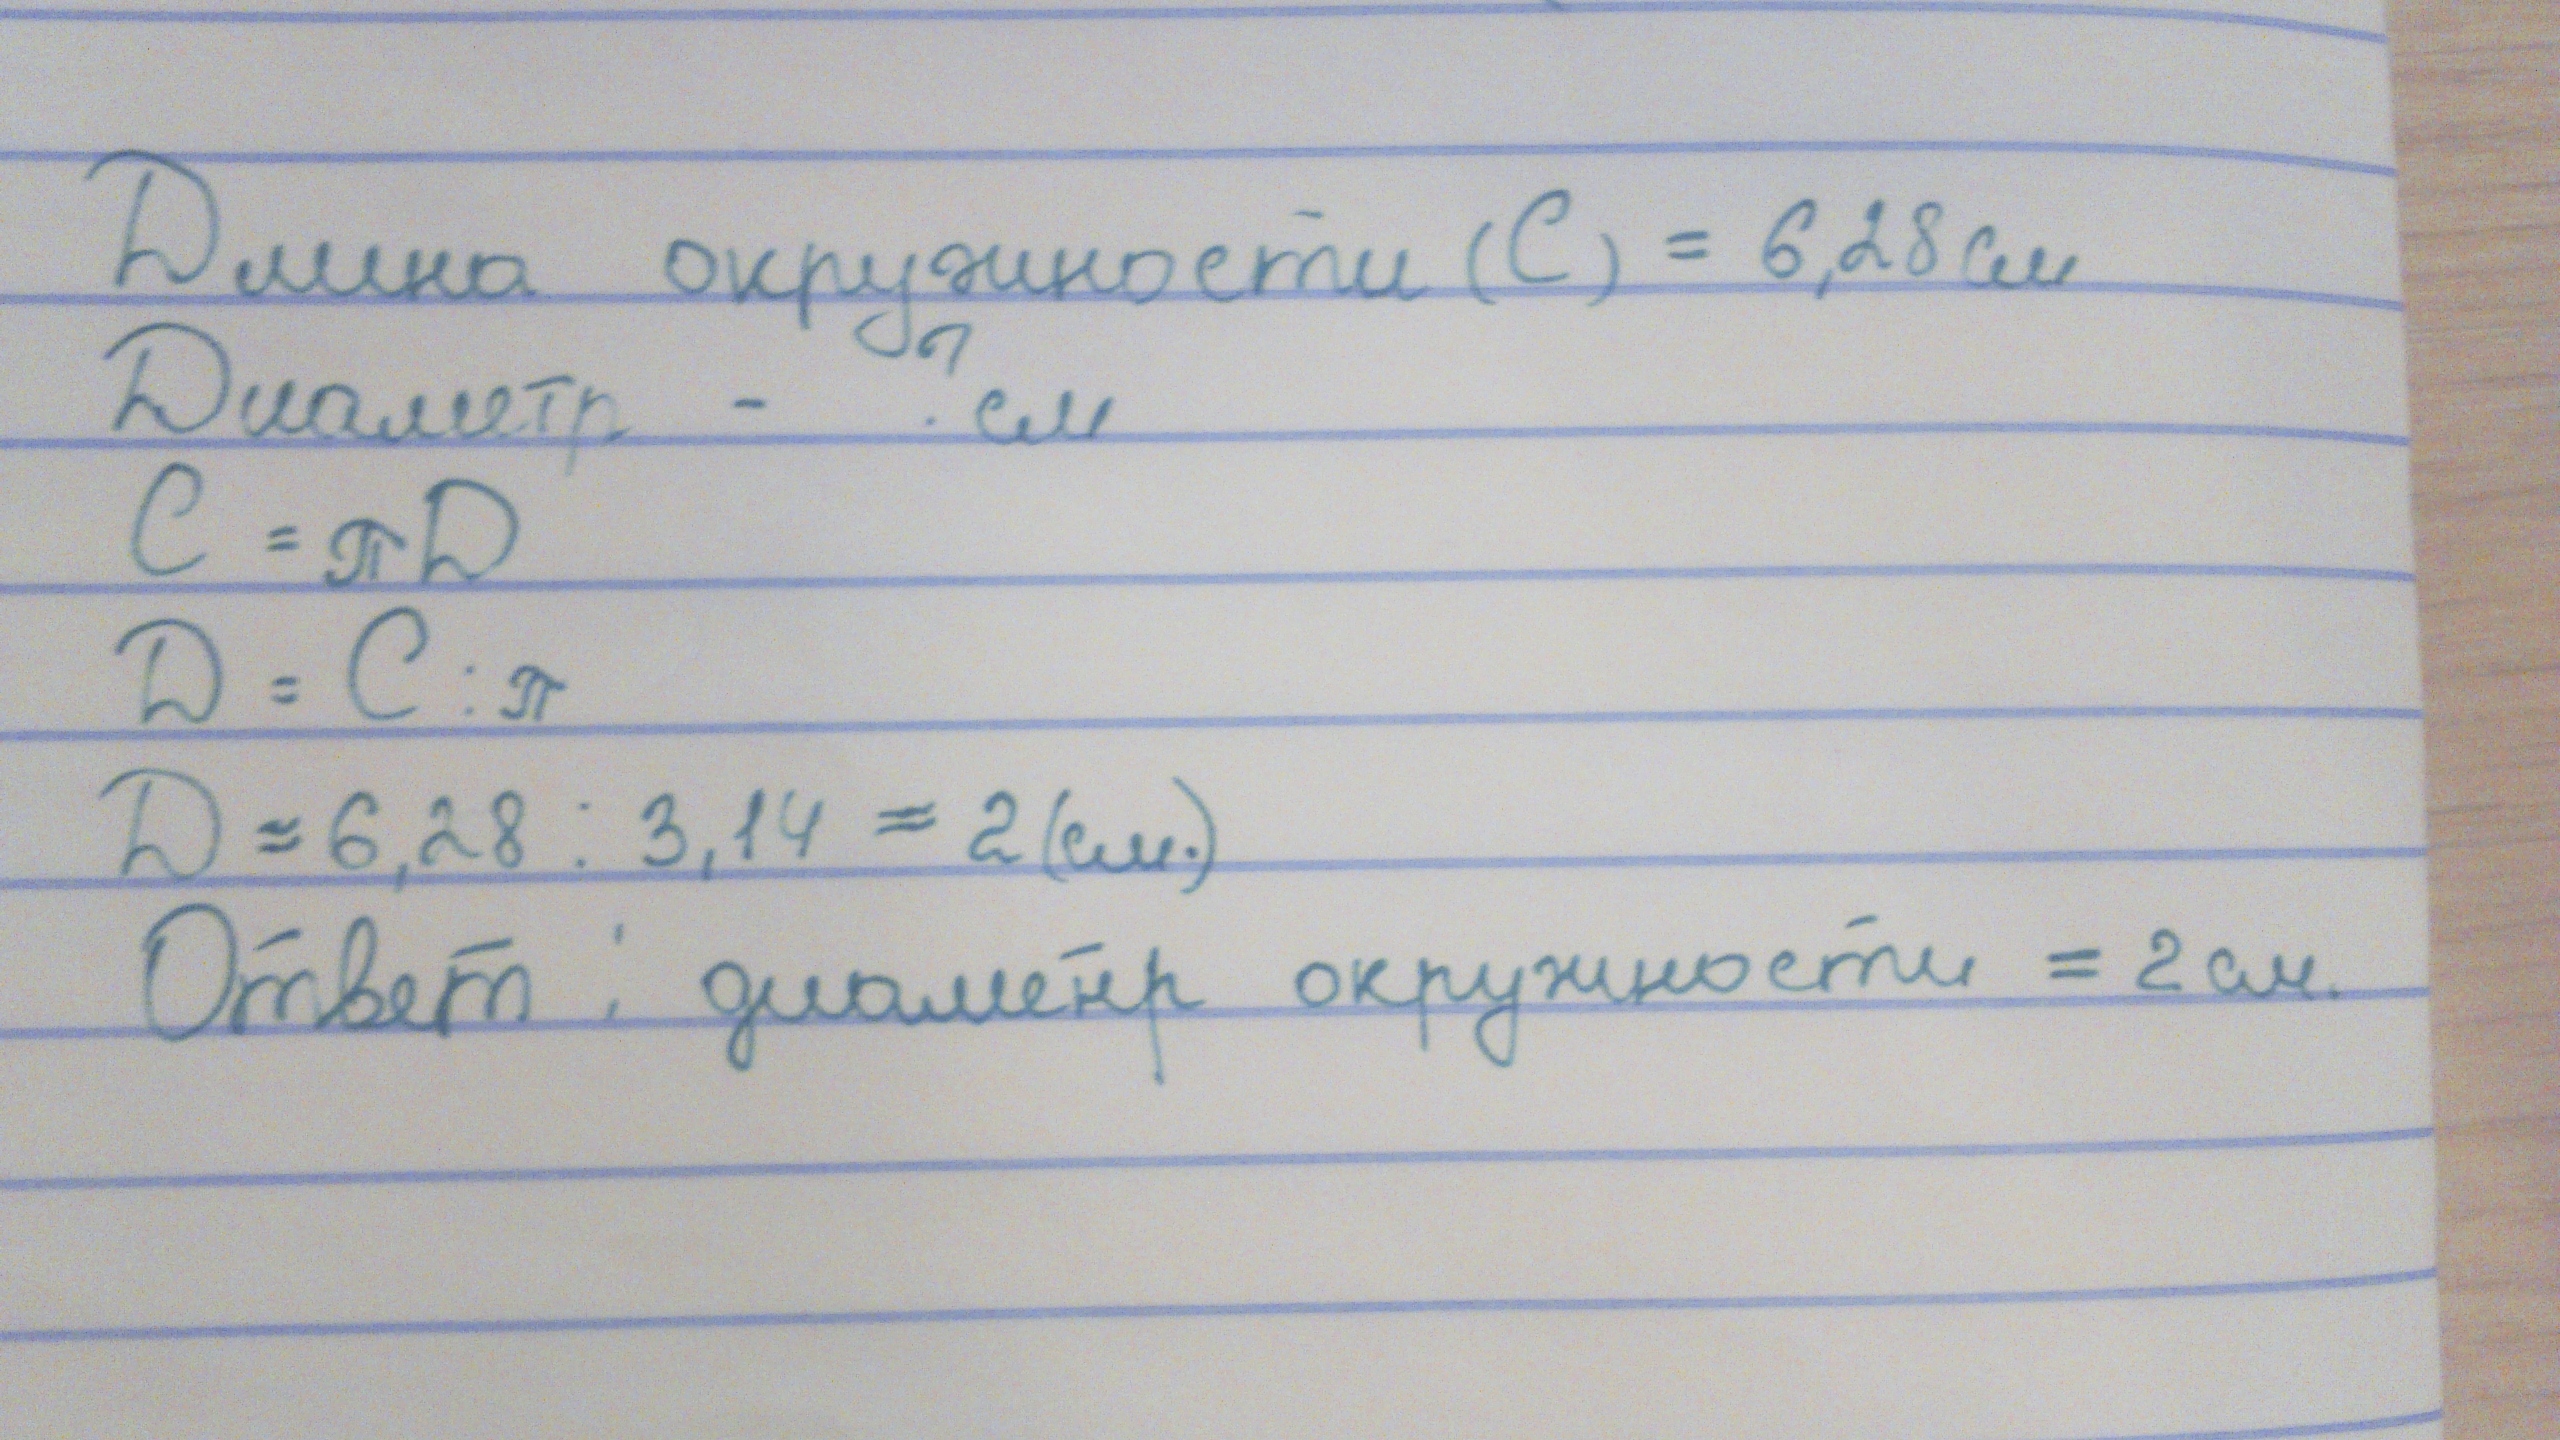 Длина окружности (С) = 6,28 см
Диаметр - ? см
C = πD
D = C : π
D ≈ 6,28 : 3,14 ≈ 2 (см.)
Ответ : диаметр окружности = 2 см.